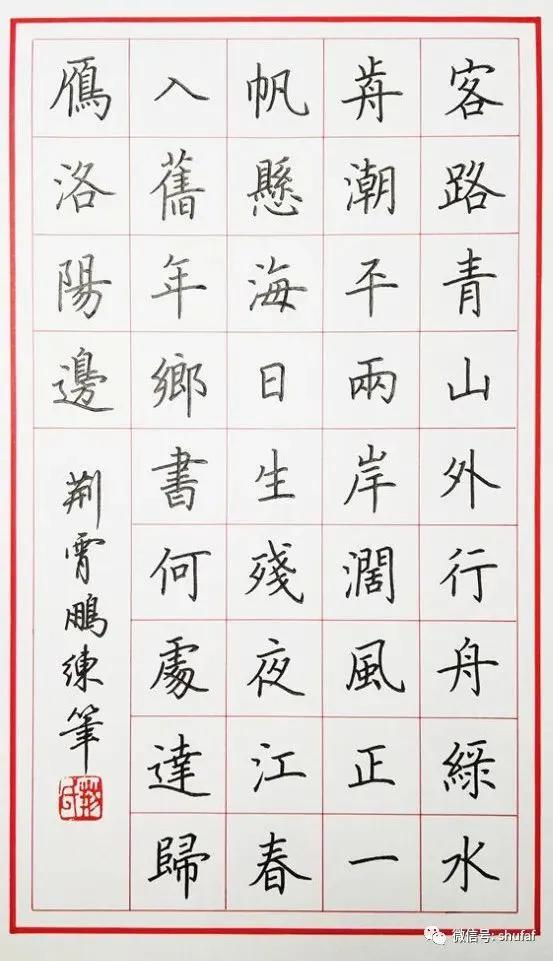 客路青山外行舟綠水
歬潮平兩岸濶風正一
帆懸海日生殘夜江春
入舊年鄉書何處達歸
鴈洛陽邊
荆霄鵬練筆
微信号: shufaf